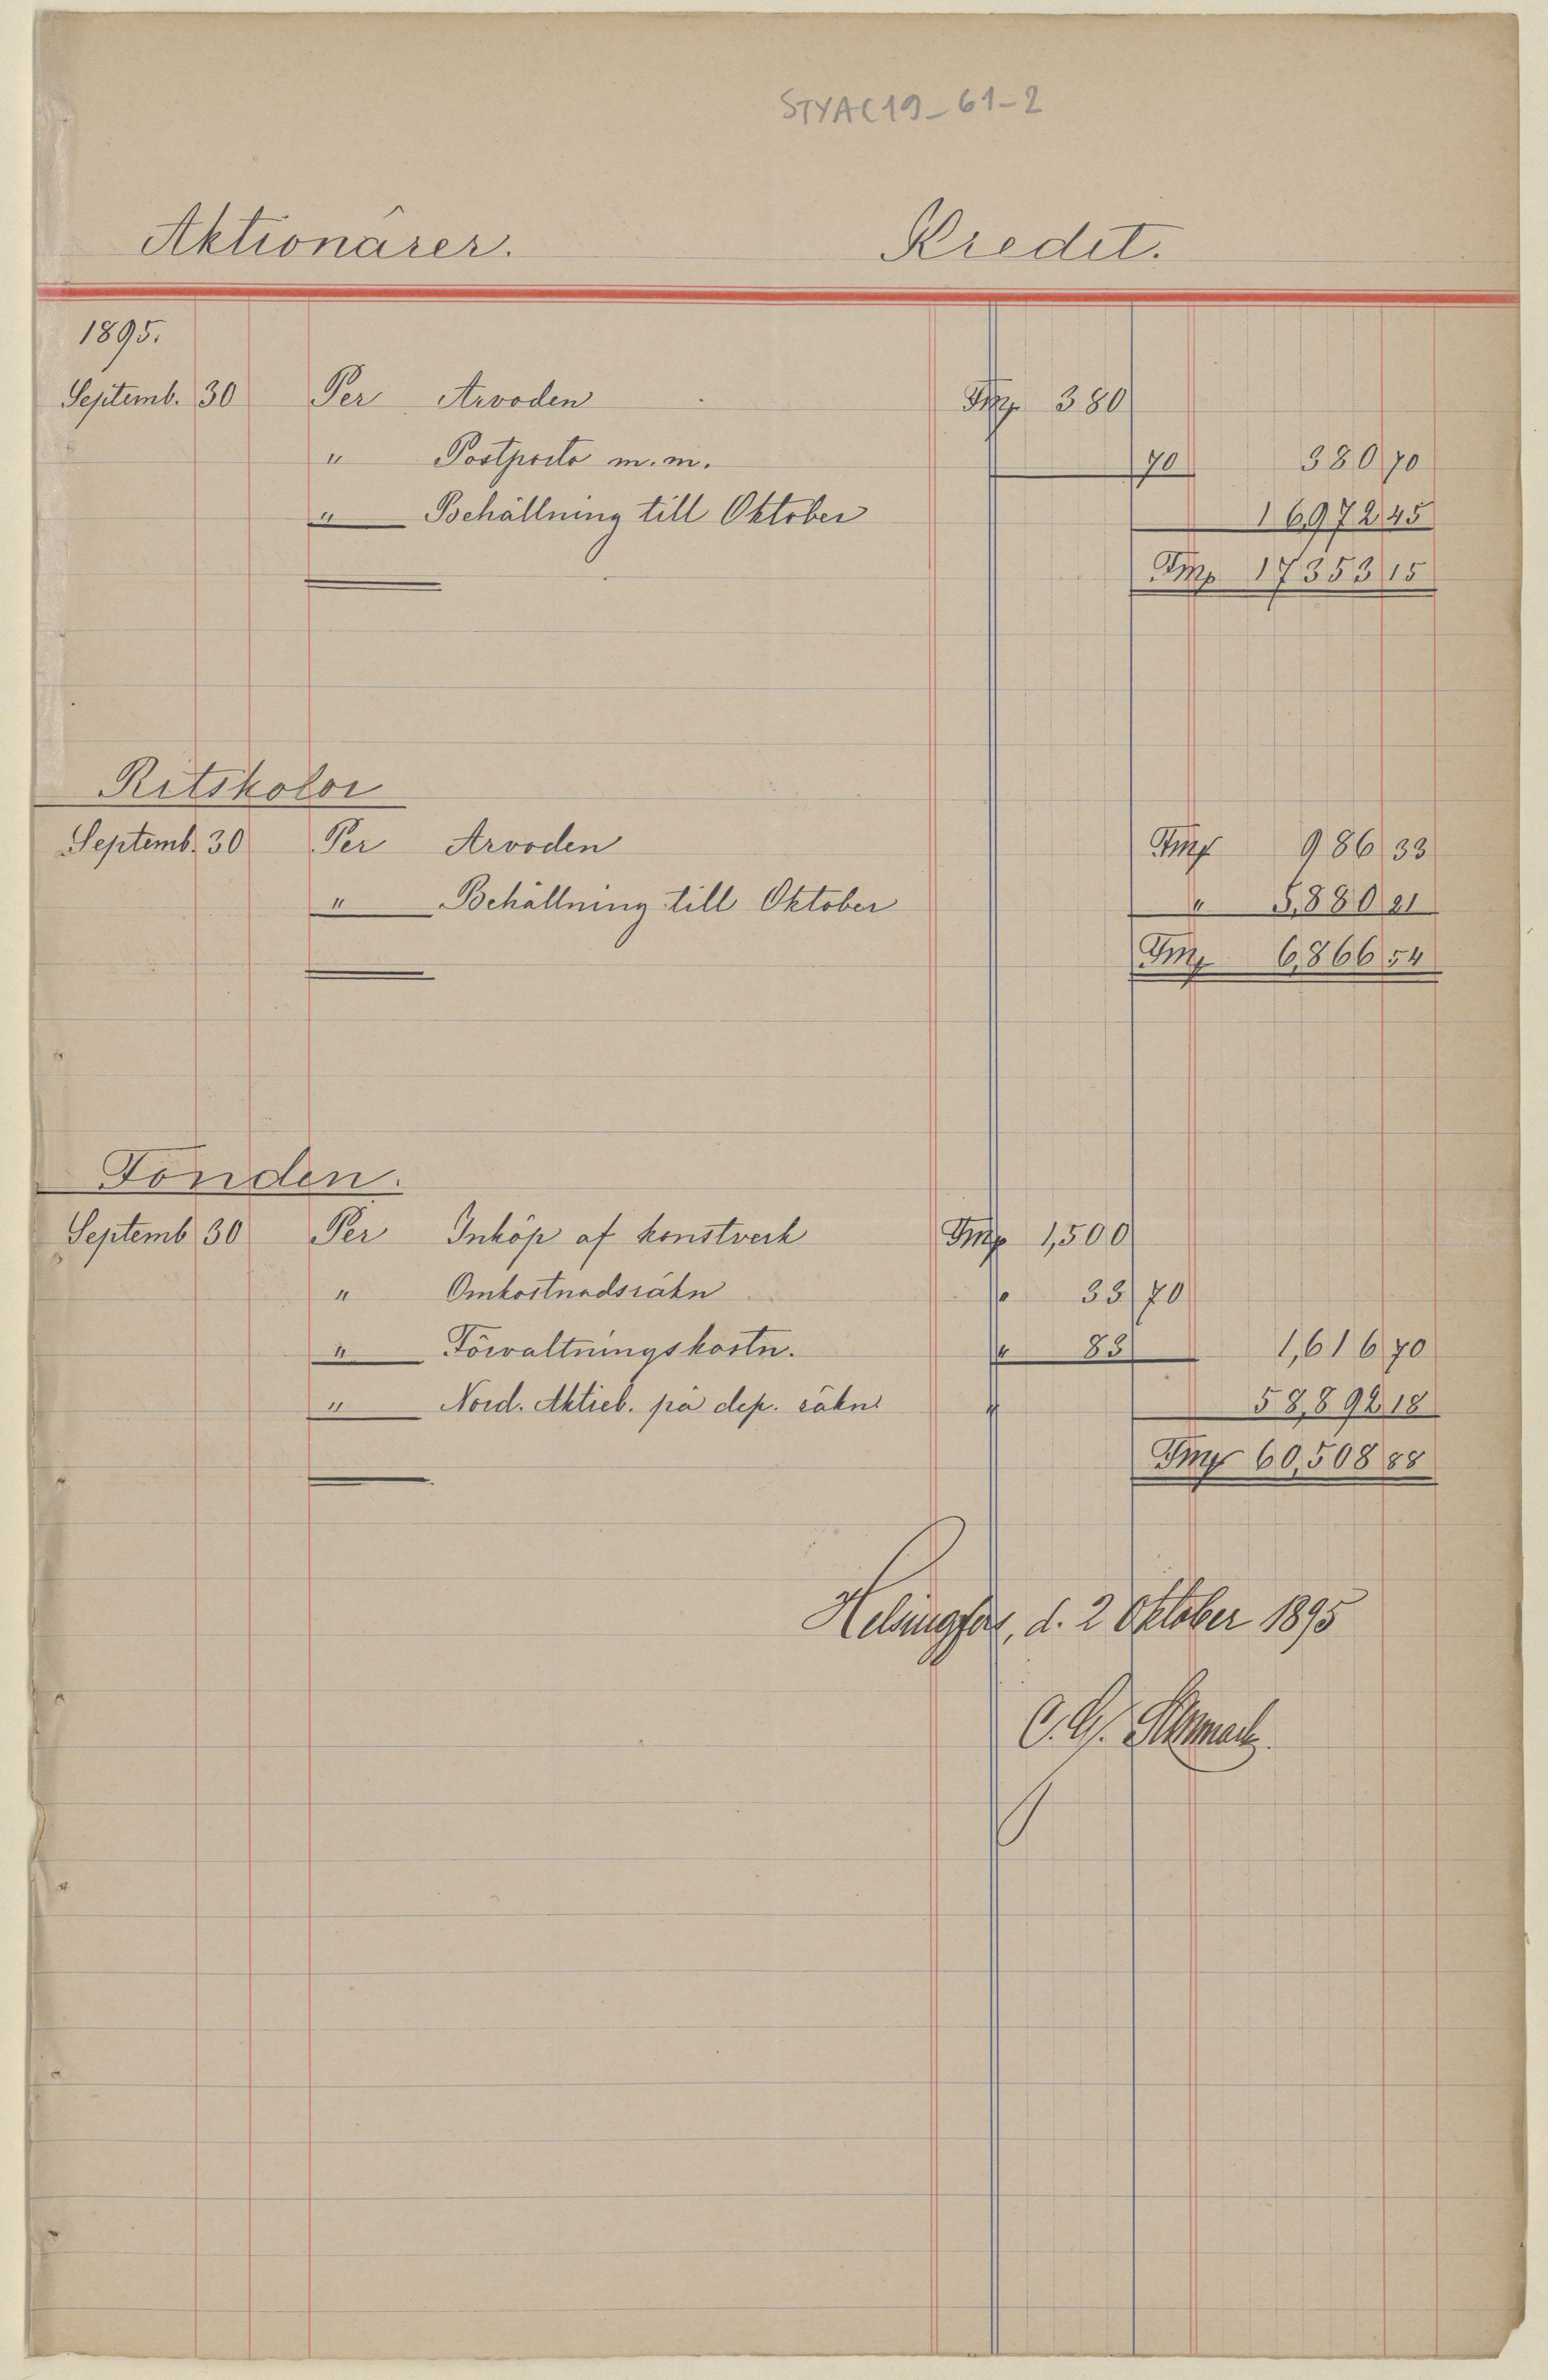 STYAC19_61-2
Aktionärer. Kredit.
1895.
Septemb. 30 Per Arvoden Fmk 380
" Postporto m.m. 70 380 70
" Behållning till Oktober 16,972 45
Fmk 17353 15
Ritskolor
Septemb. 30 Per Arvoden Fmk 986 33
" Behållning till Oktober " 5,880 21
Fmk 6,866 54
Fonden.
Septemb 30 Per Inköp af konstverk Fmk 1,500
" Omkostnadsräkn " 33 70
" Förvaltningskostn. " 83 1,616 70
" Nord. Aktieb. på dep. räkn. " 58,892 18
Fmk 60,508 88
Helsingfors, d. 2 Oktober 1895
C. G.